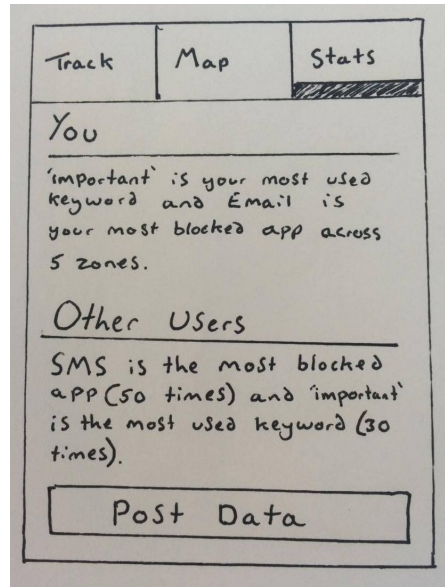 Track Map Stats
You
'important' is your most used
keyword and Email is
your most blocked app across
5 zones.
Other Users
SMS is the most blocked
app (50 times) and 'important'
is the most used keyword (30
times).
Post Data